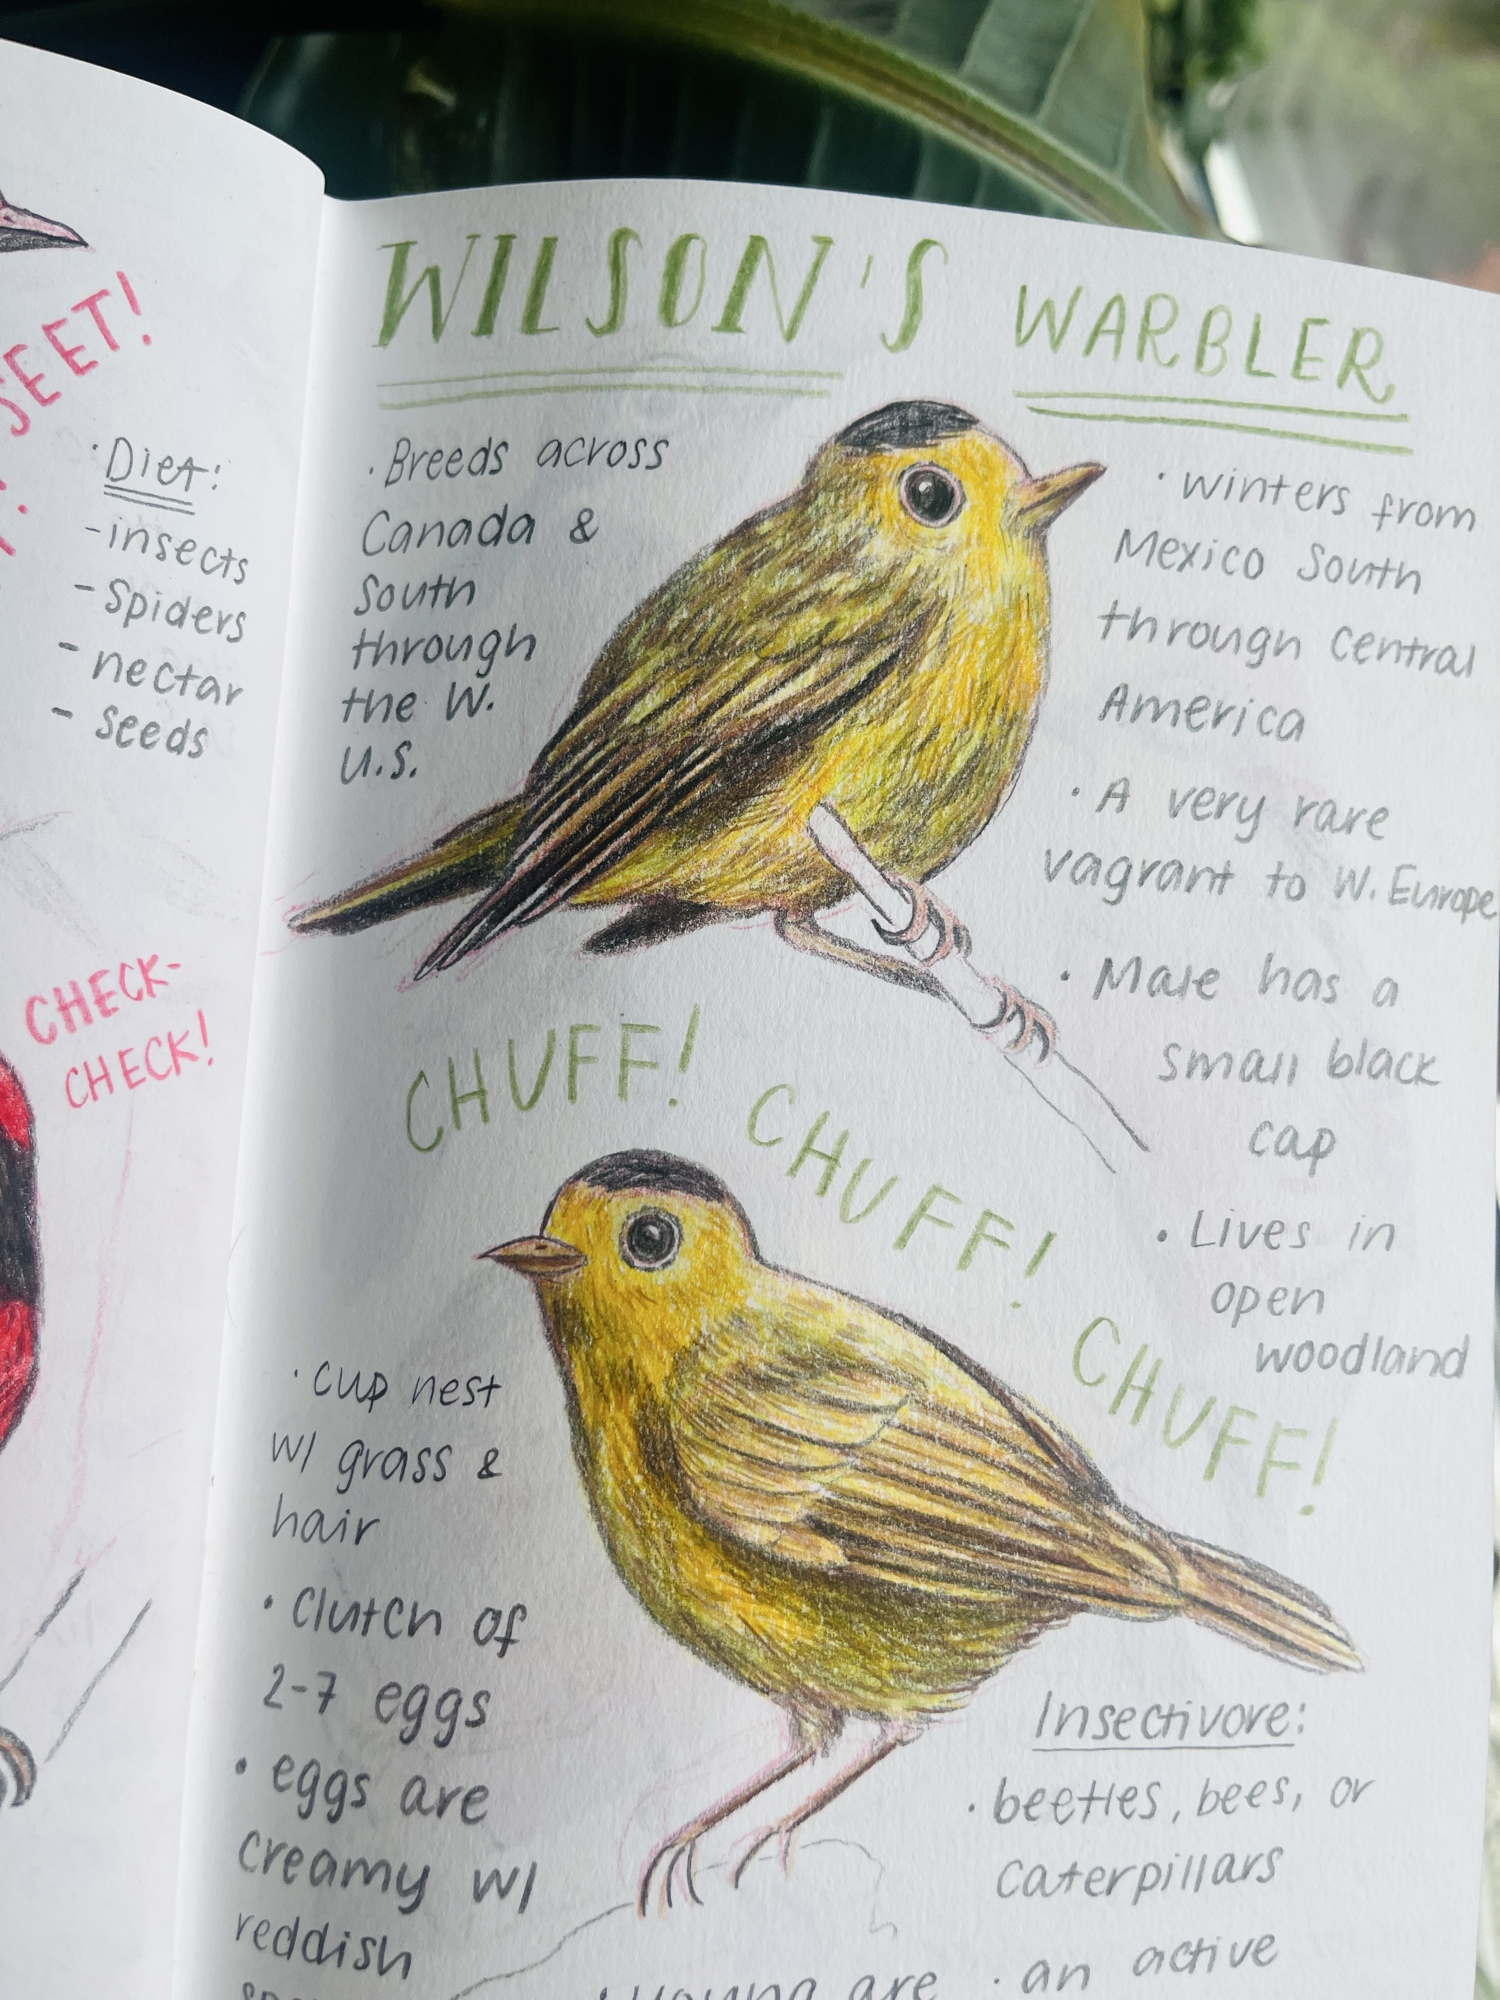 SEET!
Diet:
- insects
- Spiders
- nectar
- seeds
CHECK-
CHECK!
WILSON'S WARBLER
· Breeds across
Canada &
South
through
the W.
U.S.
· winters from
Mexico South
through Central
America
· A very rare
vagrant to W. Europe
· Male has a
small black
cap
· Lives in
open
woodland
CHUFF! CHUFF! CHUFF!
· cup nest
w/ grass &
hair
· Clutch of
2-7 eggs
· eggs are
creamy w/
reddish
Insectivore:
· beetles, bees, or
caterpillars
· young are
· an active